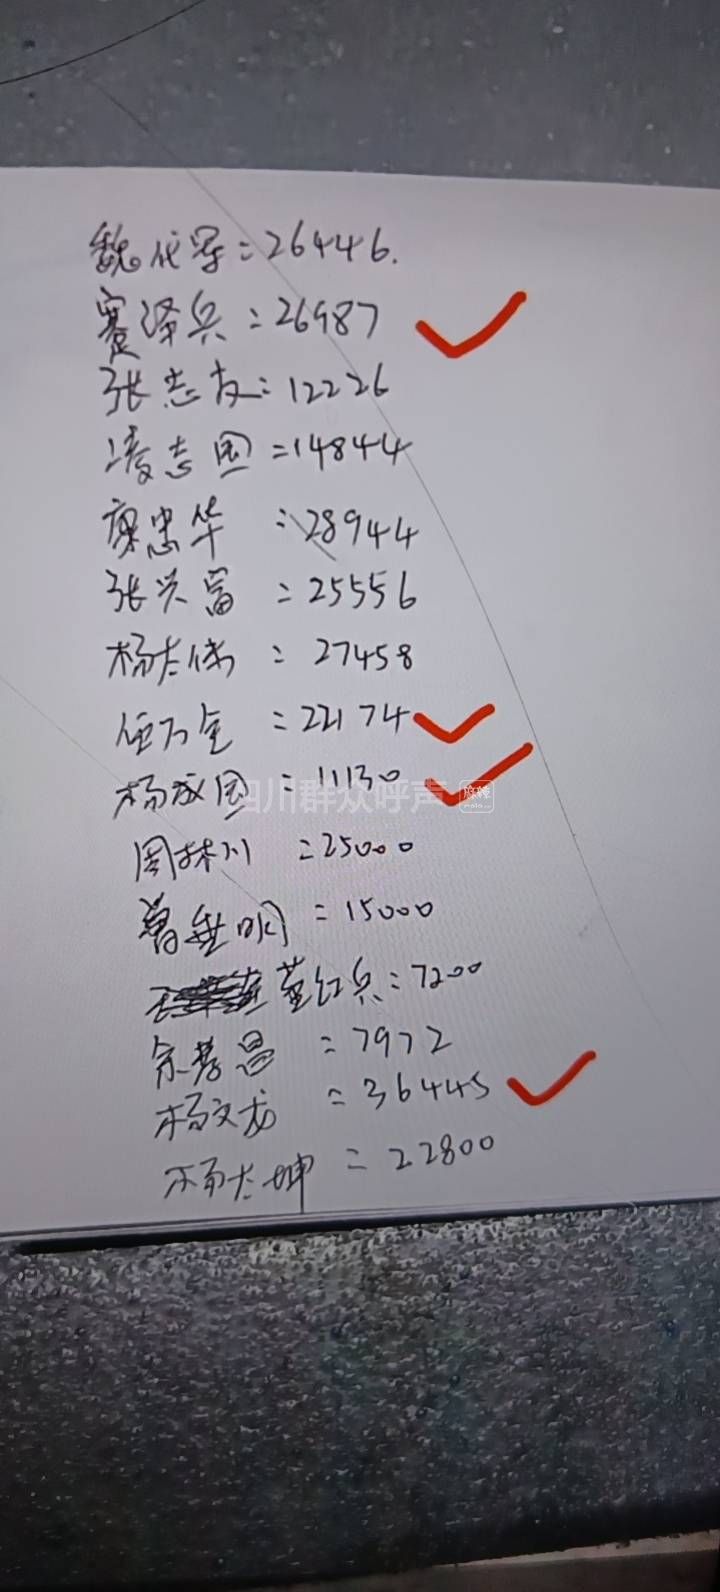 魏代军:26446.
蹇泽兵:26987
张志友:12226
凌志国=14844
康忠华:28944
张兴富:25556
杨太伟:27458
任万全=22174
杨成国:11130
四川群众呼声 麻辣
周林川=25000
曾垂明=15000
董红兵:7200
余孝昌=7972
杨文龙=36445
杨太坤=22800